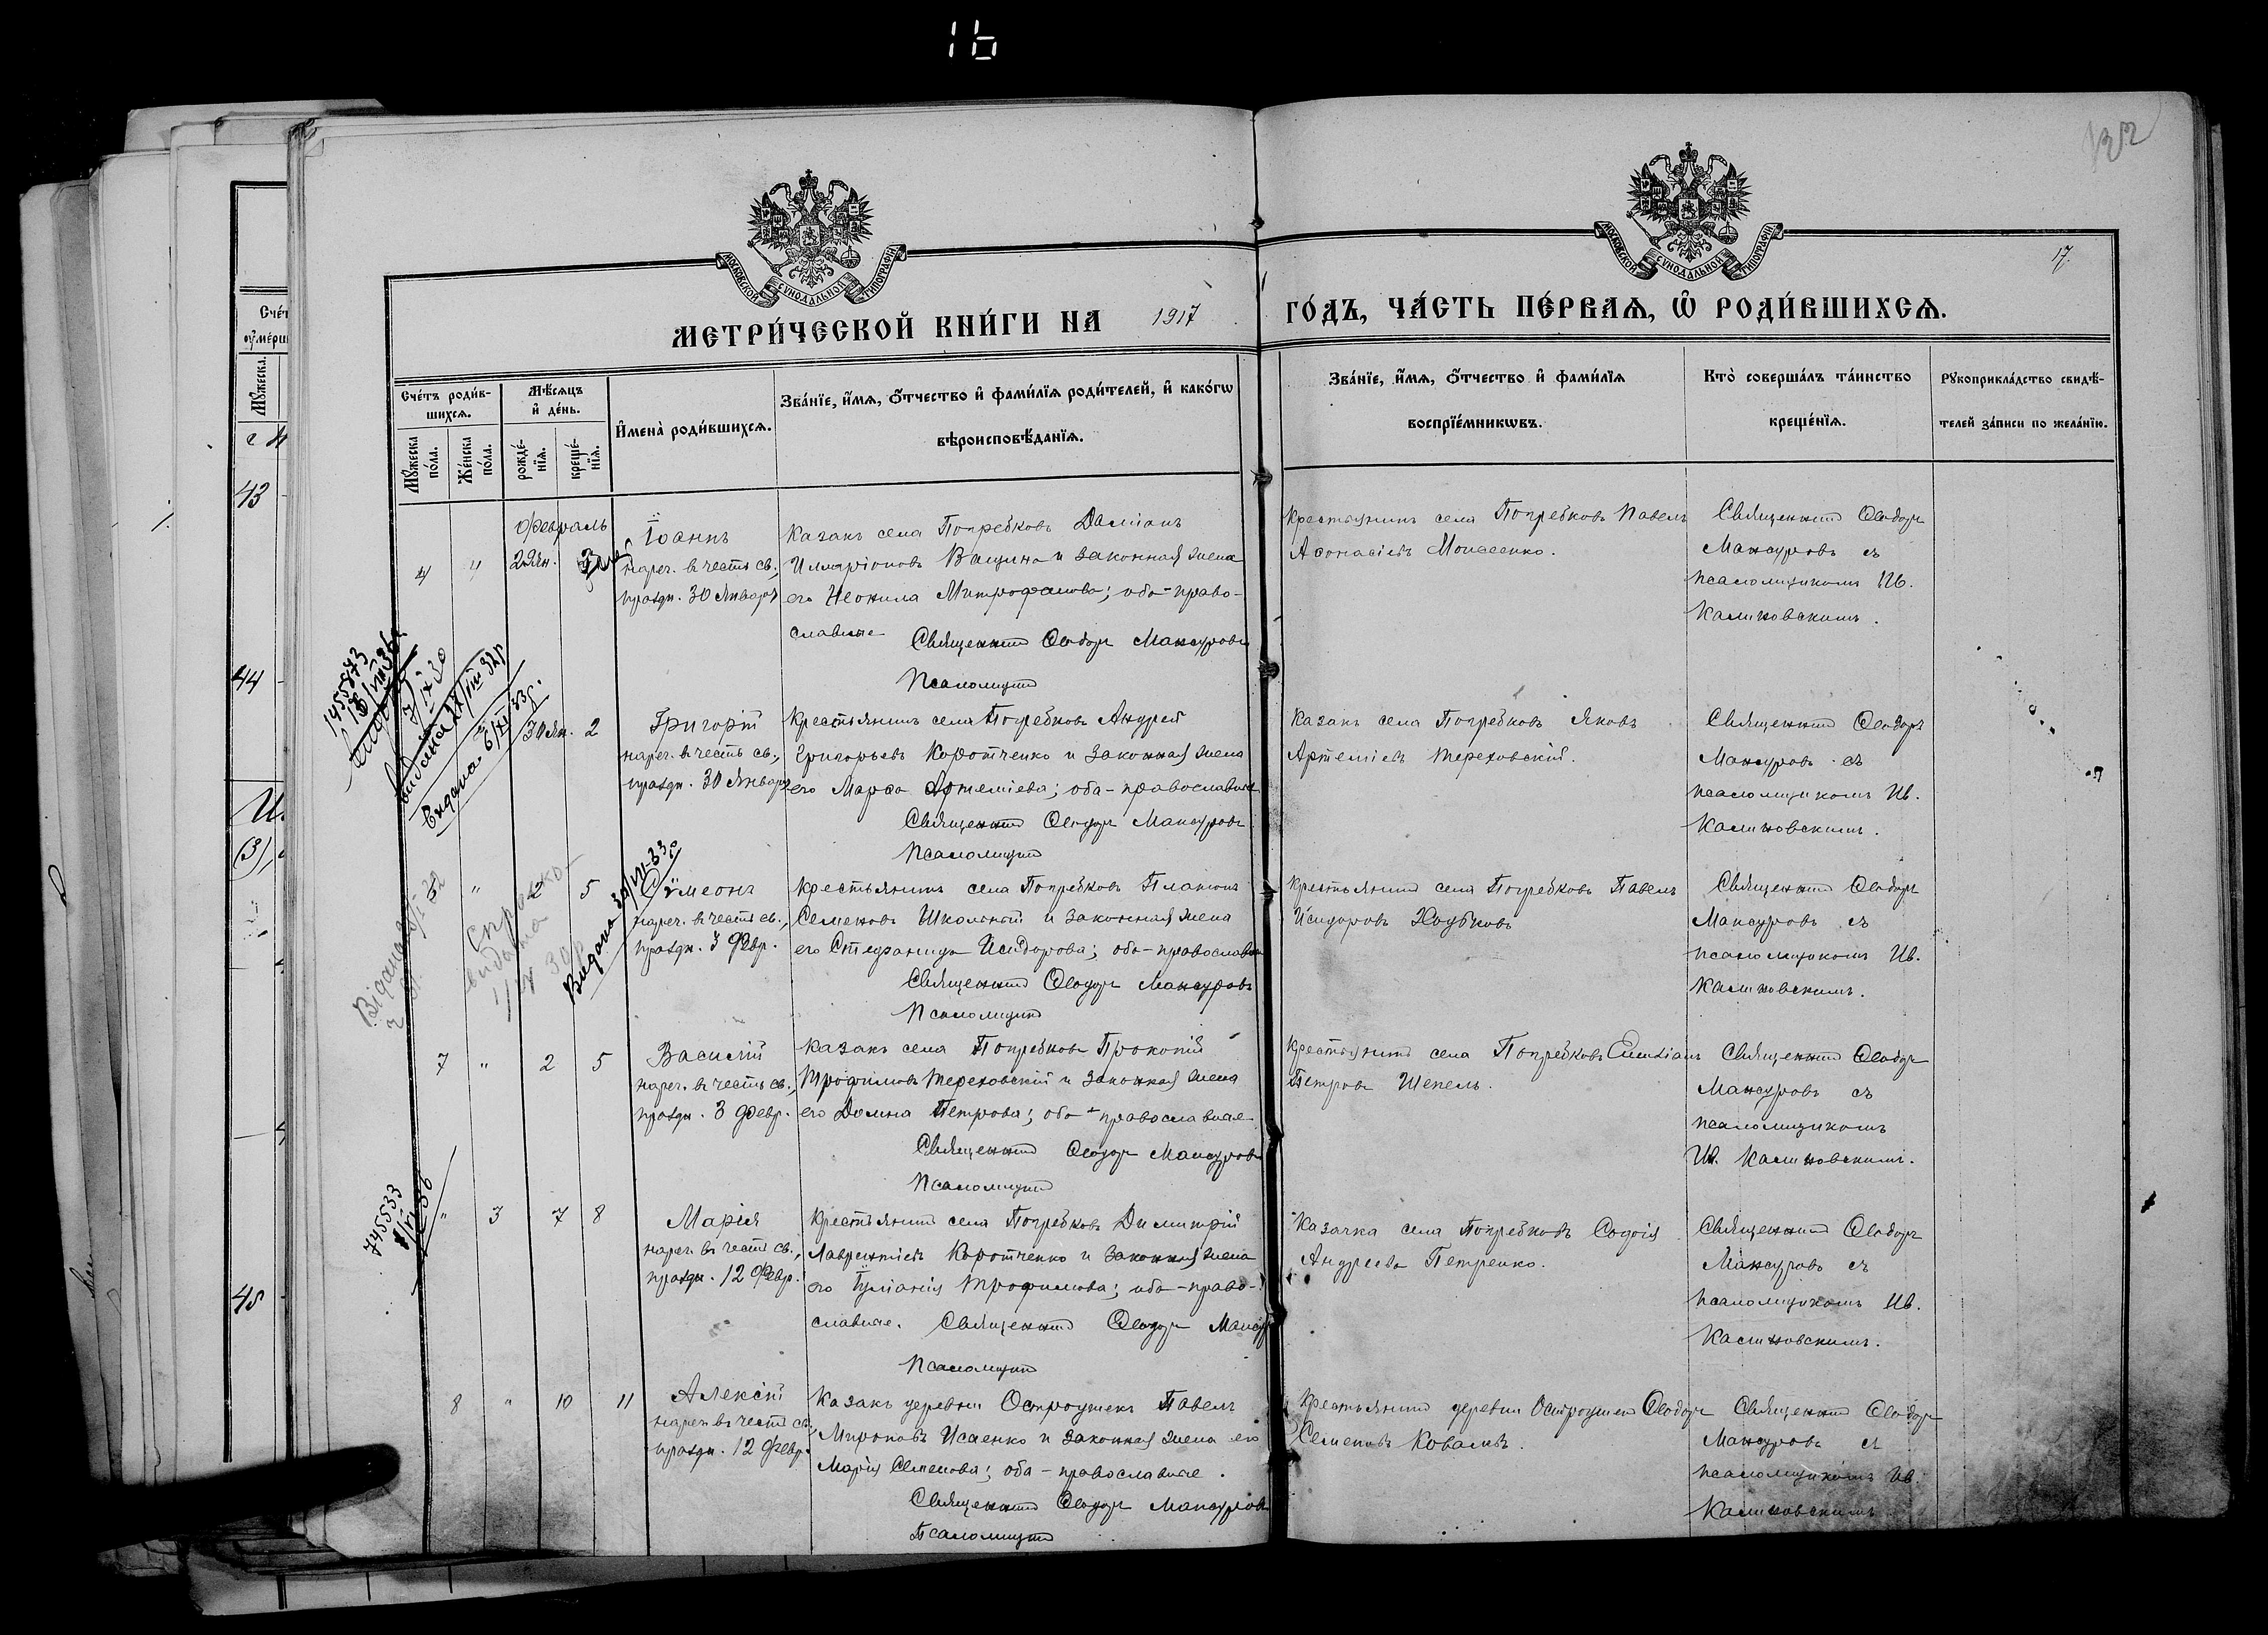 16
132
17.
МОСКОВСКОЙ СУНОДАЛЬНОЙ ТИПОГРАФІИ
МОСКОВСКОЙ СУНОДАЛЬНОЙ ТИПОГРАФІИ
МЕТРИ́ЧЕСКОЙ КНИ́ГИ НА 1917 ГО́ДЪ, ЧА́СТЬ ПЕ́РВАѦ, Ѡ҆ РОДИ́ВШИХСѦ.
Сче́тъ роди́в-
шихсѧ.
Мꙋжеска по́ла.
Же́нска по́ла.
Мѣ́сѧцъ
и҆ де́нь.
рожде́-
нїѧ.
креще́-
нїѧ.
И҆мена̀ роди́вшихсѧ.
Зва́нїе, и҆́мѧ, ѻ҆́тчество и҆ фами́лїѧ роди́телей, и҆ како́гѡ
вѣроисповѣ́данїѧ.
Зва́нїе, и҆́мѧ, ѻ҆́тчество и҆ фами́лїѧ
воспрїе́мникѡвъ.
Кто̀ соверша́лъ та́инство
креще́нїѧ.
Рꙋкоприкла́дство свидѣ́-
телей за́писи по жела́нїю.
Февраль
4 " 29 Ян.
Іоаннъ
нареч. въ честь св.,
праздн. 30 Января
Казакъ села Погребковъ Даміанъ
Илларіоновъ Ващина и законная жена
его Неонила Митрофанова; оба-право-
славные
Священникъ Ѳеодоръ Мансуровъ
Псаломщикъ
Крестьянинъ села Погребковъ Павелъ
Аѳонасіевъ Моисеенко.
Священникъ Ѳеодоръ
Мансуровъ съ
псаломщикомъ Ив.
Калиновскимъ.
1455873
18/VII 36
7/IX 30
видана /III 32р
Видана 6/XI 33р.
30 Ян. 2
Григорій
нареч. въ честь св.,
праздн. 30 Января
Крестьянинъ села Погребковъ Андрей
Григорьевъ Коротченко и законная жена
его Марѳа Артеміева; оба-православные
Священникъ Ѳеодоръ Мансуровъ
Псаломщикъ
Казакъ села Погребковъ Яковъ
Артеміевъ Тереховскій.
Священникъ Ѳеодоръ
Мансуровъ съ
псаломщикомъ Ив.
Калиновскимъ.
" 2 5
видана
Видано VII-33р
Сѵмеонъ
нареч. въ честь св.,
праздн. 3 Февр.
Крестьянинъ села Погребковъ Платонъ
Семеновъ Школьный и законная жена
его Стефанида Исидорова; оба-православные
Священникъ Ѳеодоръ Мансуровъ
Псаломщикъ
Крестьянинъ села Погребковъ Павелъ
Исидоровъ
Священникъ Ѳеодоръ
Мансуровъ съ
псаломщикомъ Ив.
Калиновскимъ.
7 " 2 5
Василій
нареч. въ честь св.,
праздн. 3 Февр.
Казакъ села Погребковъ Прокопій
Трофимовъ Тереховскій и законная жена
его Домна Петрова; оба-православные
Священникъ Ѳеодоръ Мансуровъ
Псаломщикъ
Крестьянинъ села Погребковъ Емиліанъ
Петровъ Шепель.
Священникъ Ѳеодоръ
Мансуровъ съ
псаломщикомъ
Ив. Калиновскимъ.
745533
" 3 7 8
Марія
нареч. въ честь св.,
праздн. 12 Февр.
Крестьянинъ села Погребковъ Димитрій
Лаврентіевъ Коротченко и законная жена
его Іуліанія Трофимова; оба-право-
славные. Священникъ Ѳеодоръ Мансур
Псаломщикъ
Казачка села Погребковъ Софія
Андреева Петренко.
Священникъ Ѳеодоръ
Мансуровъ съ
псаломщикомъ Ив.
Калиновскимъ.
8 " 10 11
Алексій
нареч. въ честь св.,
праздн. 12 Февр.
Казакъ деревни Остроушекъ Павелъ
Мироновъ Исаенко и законная жена его
Марія Семенова; оба-православные.
Священникъ Ѳеодоръ Мансуровъ
Псаломщикъ
Крестьянинъ деревни Остроушекъ Ѳеодоръ
Семеновъ Ковалевъ.
Священникъ Ѳеодоръ
Мансуровъ съ
псаломщикомъ Ив.
Калиновскимъ
43
44
45